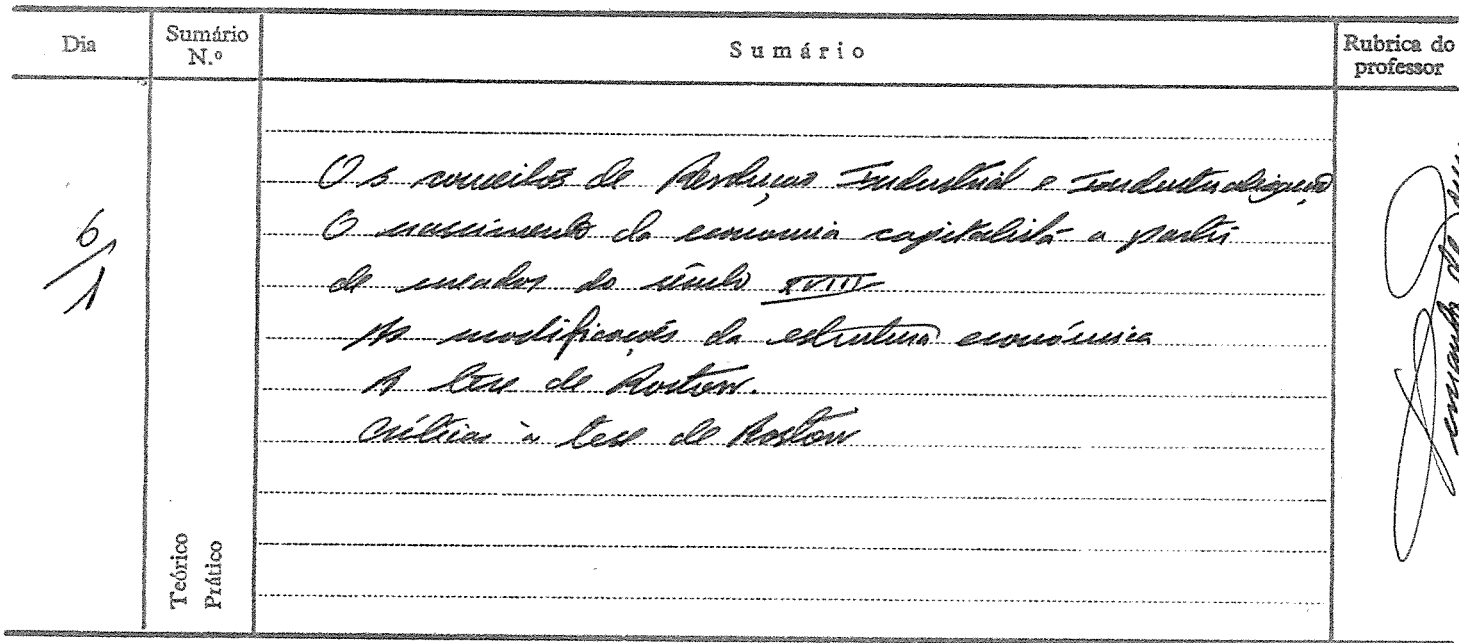 Dia
Sumário N.º
Sumário
Rubrica do professor
6/1
Os conceitos de Revolução Industrial e Industrialização
O nascimento da economia capitalista a partir
de meados do século XVIII
As modificações da estrutura económica
A tese de Rostow.
Críticas à tese de Rostow
Teórico
Prático